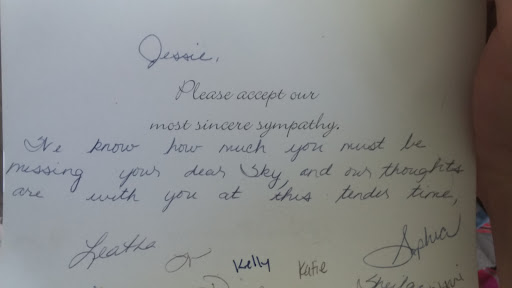 Jessie,
Please accept our
most sincere sympathy.
We know how much you must be
missing your dear Sky, and our thoughts
are with you at this tender time,
Leatha Kelly Katie Sophia